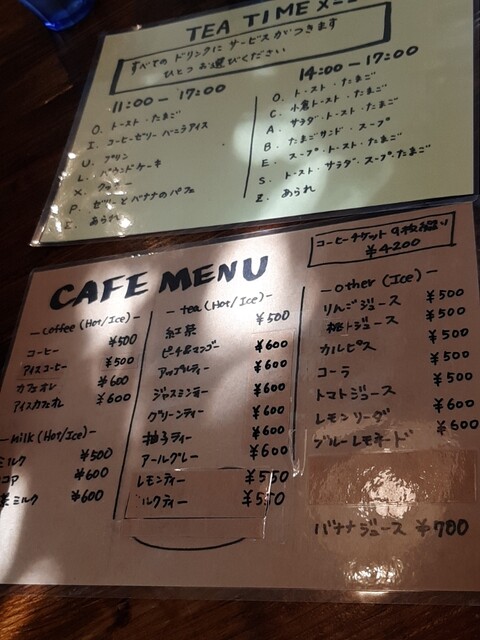 TEA TIME メニュー
すべての ドリンクに サービスがつきます
ひとつ お選びください
11:00 - 17:00
O. トースト・たまご
I. コーヒーゼリー バニラアイス
U. プリン
L. パウンドケーキ
X. クッキー
P. ゼリーとバナナのパフェ
Z. あられ
14:00 - 17:00
O. トースト・たまご
C. 小倉トースト・たまご
A. サラダ・トースト・たまご
B. たまごサンド・スープ
E. スープ・トースト・たまご
S. トースト・サラダ・スープ・たまご
Z. あられ
コーヒーチケット 9枚綴り
¥4200
CAFE MENU
- coffee (Hot/Ice) -
コーヒー ¥500
アイスコーヒー ¥500
カフェオレ ¥600
アイスカフェオレ ¥600
- milk (Hot/Ice) -
ミルク ¥500
ココア ¥600
ミルク ¥600
- tea (Hot/Ice) -
紅茶 ¥500
ピーチ&マンゴー ¥600
アップルティー ¥600
ジャスミンティー ¥600
グリーンティー ¥600
柚子ティー ¥600
アールグレー ¥600
レモンティー ¥550
ミルクティー ¥550
- other (Ice) -
りんごジュース ¥500
桃ジュース ¥500
カルピス ¥500
コーラ ¥500
トマトジュース ¥500
レモンソーダ ¥600
ブルーレモネード ¥600
バナナジュース ¥700